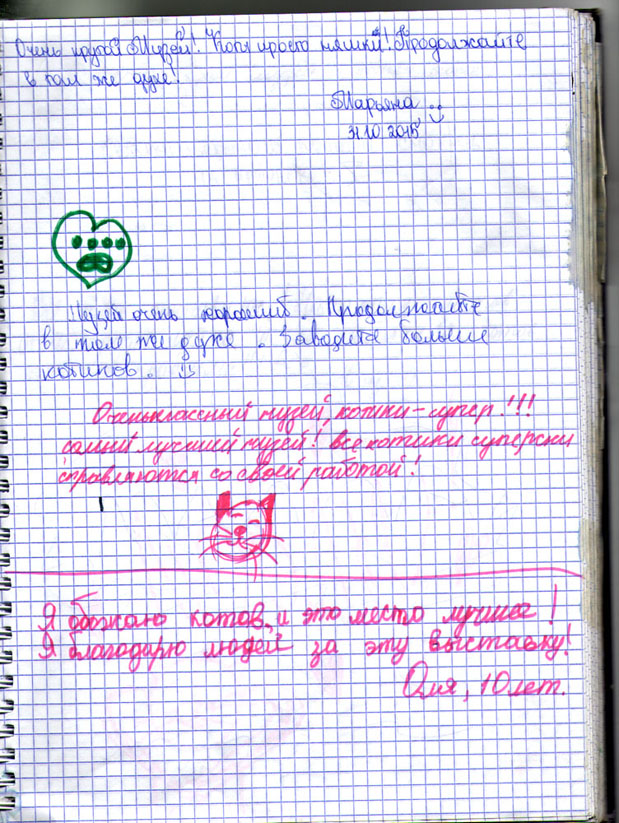 Очень крутой Музей! Коты просто няшки! Продолжайте
в том же духе!
Марьяна
31.10.2015
Музей очень хороший. Продолжайте
в том же духе. Заводите больше
котиков.
Оченькласный музей, котики-супер!!!
самый лучший музей! все котики суперски
справляются со своей работой!
Я обожаю котов, и это место лучшее!
Я благодарю людей за эту выставку!
Оля, 10 лет.